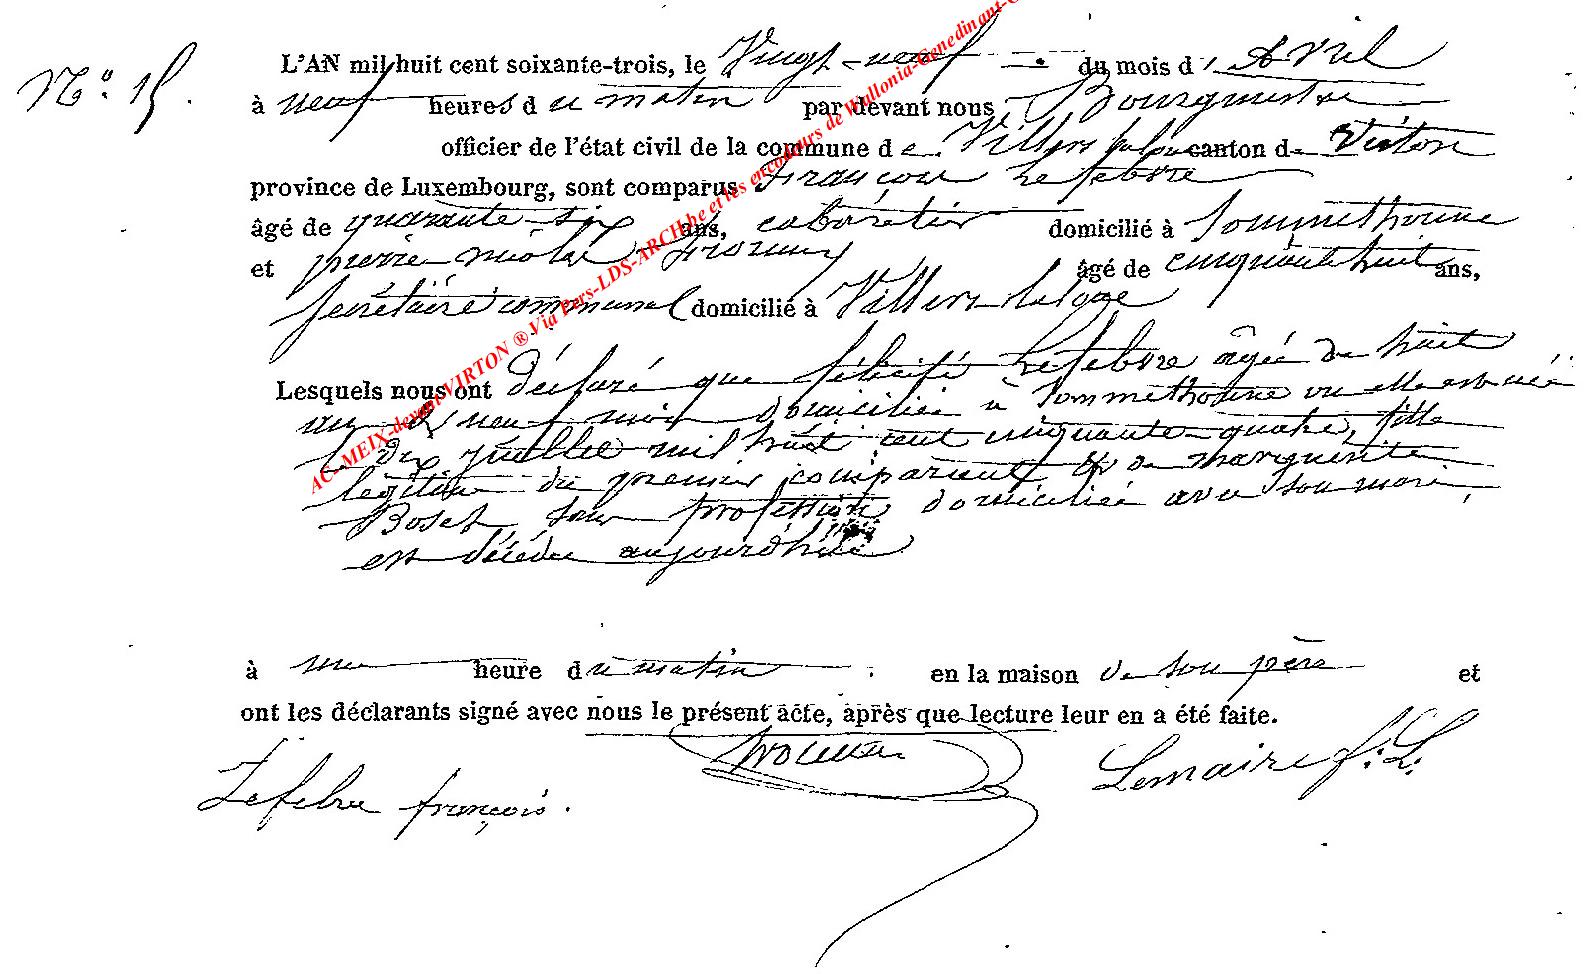 N° 15.
L'AN mil huit cent soixante-trois, le Vingt-neuf du mois d'Avril
à neuf heures du matin par devant nous, Bourgmestre
officier de l'état civil de la commune de Villers canton de Virton
province de Luxembourg, sont comparus François Lefebvre
âgé de quarante-six ans, cabaretier domicilié à Sommethonne
et pierre nicolas âgé de cinquante huit ans,
secrétaire communal domicilié à Villers-la loue
Lesquels nous ont déclaré que félicité Lefebvre agée de huit
ans & neuf mois domiciliée à Sommethonne ou elle est née
le dix juillet mil huit cent cinquante-quatre, fille
légitime du premier comparant & de marguerite
Boset sans profession domiciliée avec son mari,
est décédée aujourd'hui
à une heure du matin en la maison de son père et
ont les déclarants signé avec nous le présent acte, après que lecture leur en a été faite.
Lefebvre françois. Lemaire f. L.
AC-MEIX-devant-VIRTON ® Via Pers-LDS-ARCH.be et les encodeurs de Wallonia-Genedinant-G